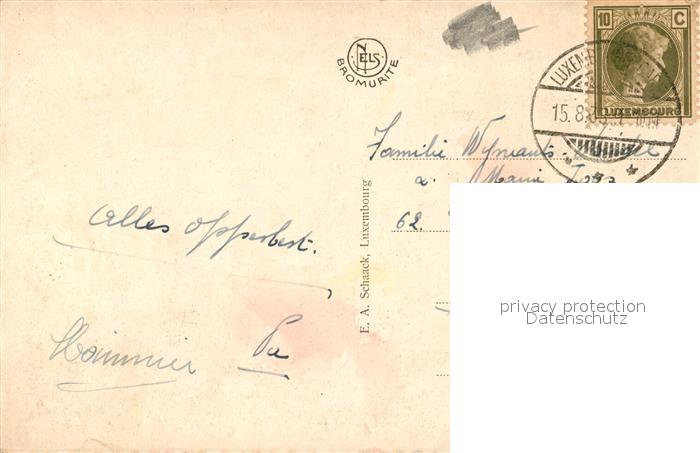 NELS
BROMURITE
10 C
LUXEMBOURG
15.8.
Familie Wymants
a. Maria
62.
E. A. Schaack, Luxembourg
Alles opperbest.
privacy protection
Datenschutz